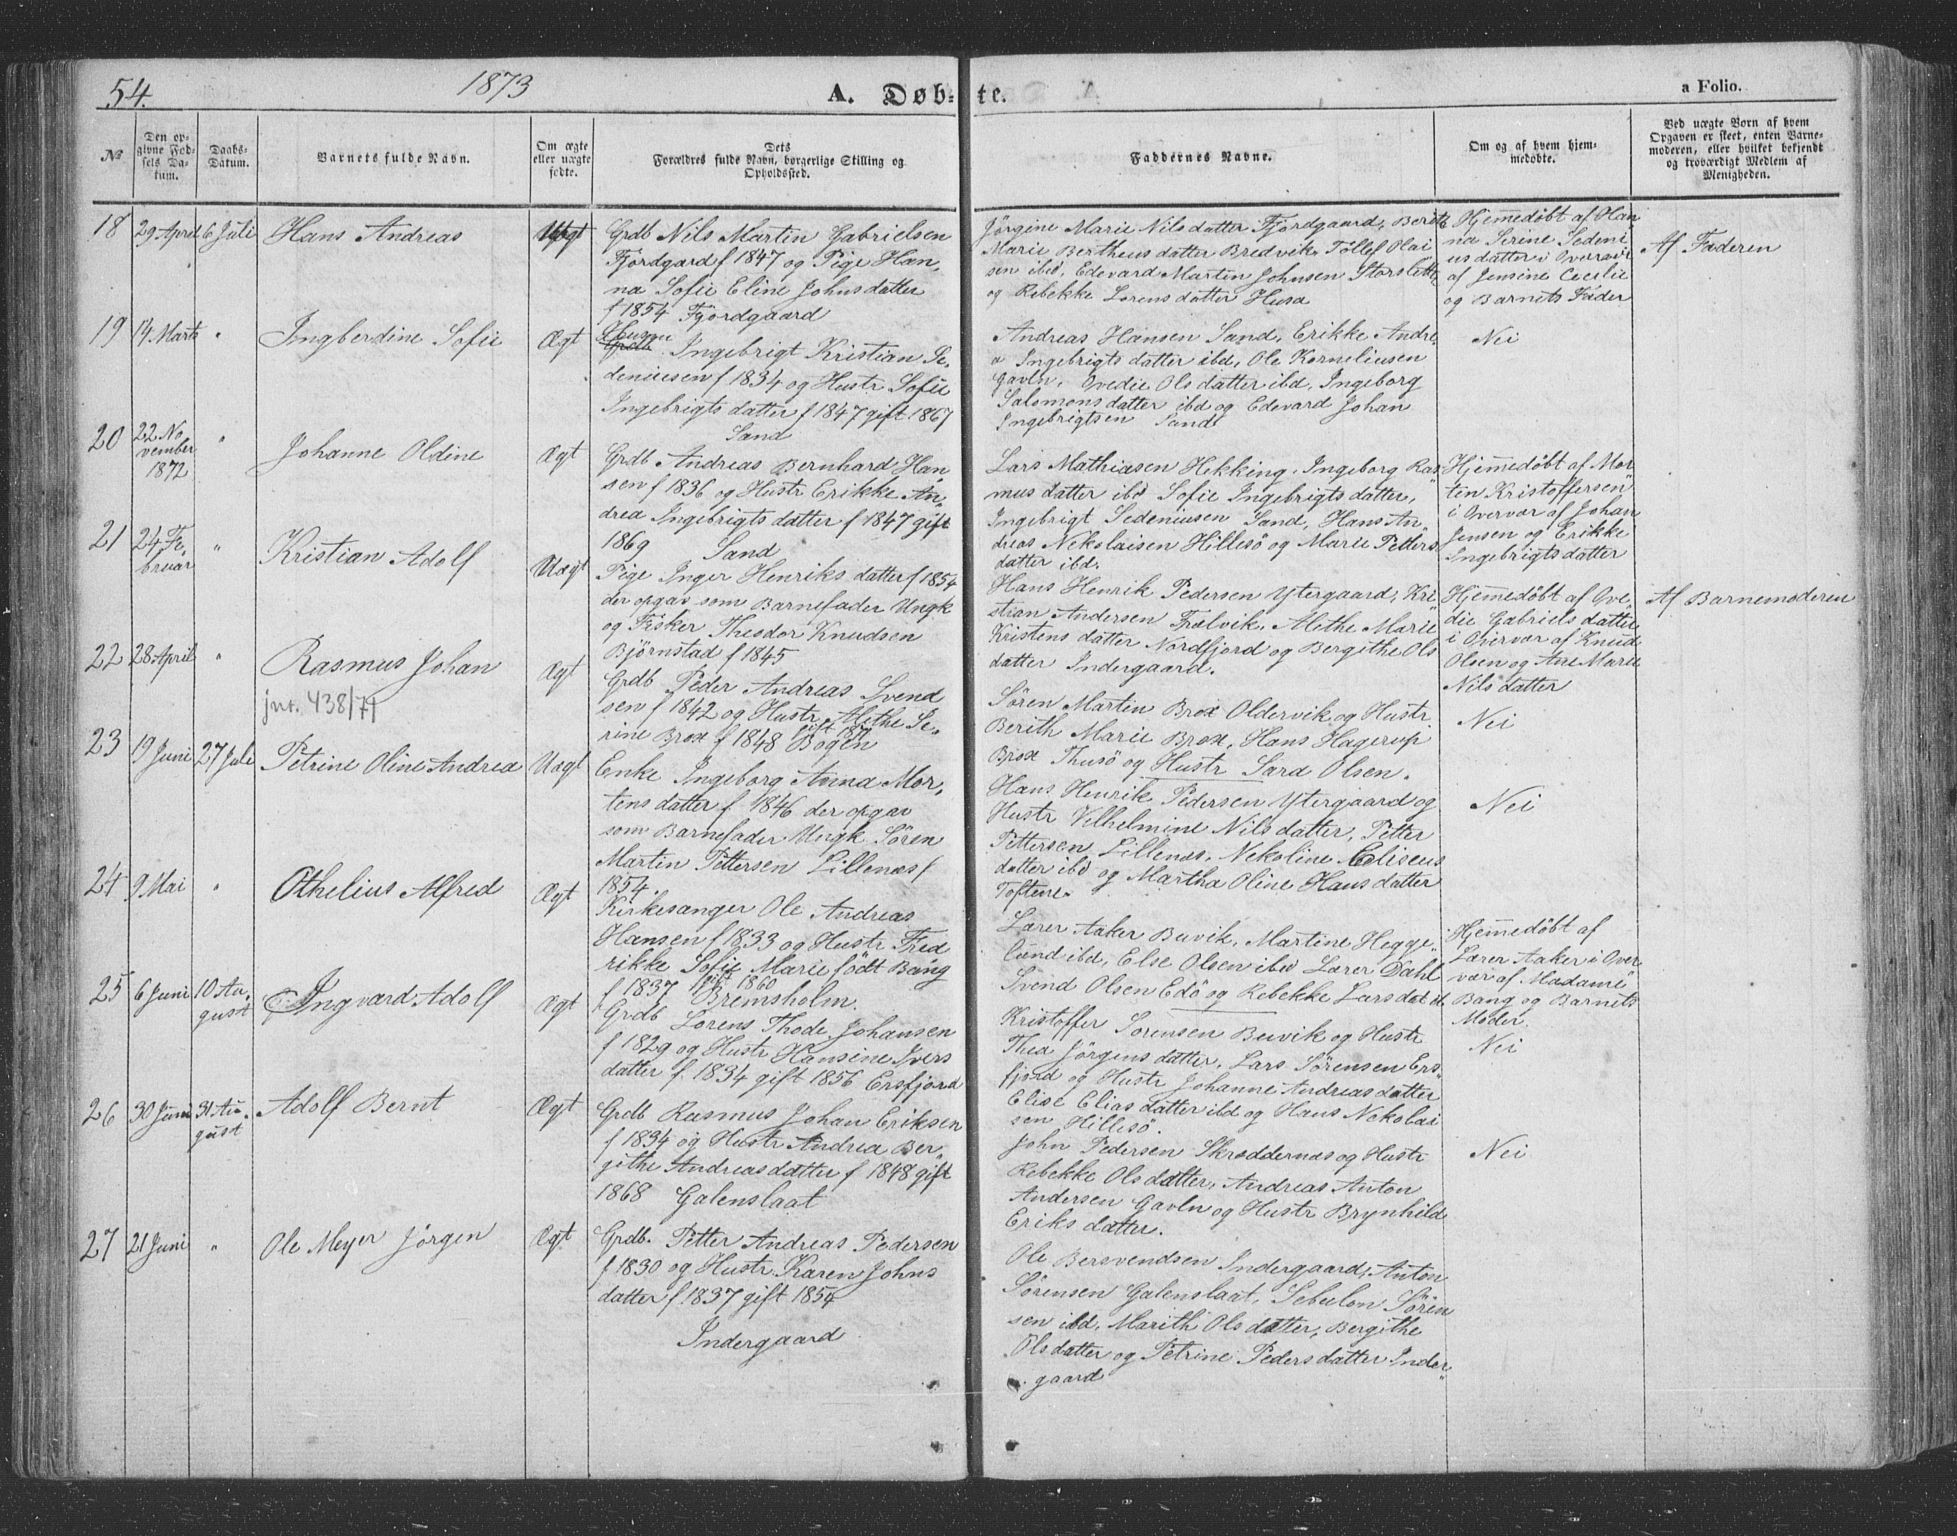 54.
1873
A. Døb-
te.
a Folio.
No
Den op-
givne Fød-
sels Da-
tum.
Daabs-
Datum.
Barnets fulde Navn.
Om ægte
eller uægte
fødte.
Dets
Forældres fulde Navn, borgerlige Stilling og
Opholdssted.
Faddernes Navne.
Om og af hvem hjem-
medøbte.
Ved uægte Børn af hvem
Opgaven er skeet, enten Barne-
moderen, eller hvilket bekjendt
og troværdigt Medlem af
Menigheden.
18
29 April
6 Juli
Hans Andreas
Uægt
Grdb Nils Martin Gabrielsen
Fjordgaard f 1847 og Pige Han,
na Sofie Eline Johnsdatter
f 1854 Fjordgaard
Jørgine Marie Nilsdatter Fjordgaard, Berith
Marie Bertheusdatter Bredvik, Tøllef Olai
sen ibd, Edevard Martin Johnsen Storslette
og Rebekke Lorensdatter Husa
Hjemmedøbt af Han
na Serine Sedeni
us datter i Overvær
af Jensine Cecilie
og Barnets Fader
Af Faderen
19
14 Marts
"
Ingberdine Sofie
Ægt
Husm
Grdb Ingebrigt Kristian Se,
deniusen f 1834 og Hustr Sofie
Ingebrigtsdatter f 1847 gift 1867
Sand
Andreas Hansen Sand, Erikke Andre,
a Ingebrigtsdatter ibd, Ole Korneliusen
Gavln, Ovedie Olsdatter ibd, Ingeborg
Salomonsdatter ibd og Edevard Johan
Ingebrigtsen Sand
Nei
20
22 No
vember
1872
"
Johanne Oldine
Ægt
Grdb Andreas Bernhard Han
sen f 1836 og Hustr Erikke An,
drea Ingebrigtsdatter f 1847 gift
1869 Sand
Lars Mathiasen Hekking, Ingeborg Ras
musdatter ibd Sofie Ingebrigtsdatter,
Ingebrigt Sedeniusen Sand, Hans An
dreas Nekolaisen Hillesö og Marie Petters
datter ibd.
Hjemmedøbt af Mor
ten Kristoffersen
i Overvær af Johan
Jensen og Erikke
Ingebrigtsdatter
21
24 Fe
bruar
"
Kristian Adolf
Uægt
Pige Inger Henriksdatter f 1854
der opgav som Barnefader Ungk
og Fisker Theodor Knudsen
Björnstad f 1845
Hans Henrik Pedersen Ytergaard, Kri
stian Andersen Trælvik, Alethe Marie
Kristensdatter Nordfjord og Bergithe Ols
datter Indergaard.
Hjemedøbt af Ove
die Gabrielsdatter
i Overvær af Knud
Olsen og Ane Marie
Nilsdatter
Af Barnemoderen
22
28 April
"
Rasmus Johan
jnr. 438/71
Ægt
Grdb Peder Andreas Svend
sen f 1842 og Hustr Alethe Se,
rine Brox f 1848 Bogen
Søren Martin Brox Oldervik og Hustr
Berith Marie Brox, Hans Hagerup
Brox Thusö og Hustr Sara Olsen.
Nei
23
19 Juni
27 Juli
Petrine Oline Andrea
Uægt
Enke Ingeborg Anna Mor,
tensdatter f 1846 der opgav
som Barnefader Ungk Sören
Martin Pettersen Lillenæs f
1854.
Hans Henrik Pedersen Ytergaard og
Hustr Velhelmine Nilsdatter, Petter
Pettersen Lillenæs, Nekoline Eliseus
datter ibd og Martha Oline Hansdatter
Toftene.
Nei
24
9 Mai
"
Othelius Alfred
Ægt
Kirkesanger Ole Andreas
Hansen f 1833 og Hustr Fred
rikke Sofie Marie född Bang
f 1837 gift 1860
Bremsholm.
Lærer Aaker Buvik, Martine Hegge,
lund ibd, Else Olsen ibd Lærer Dahl
Svend Olsen Edö og Rebekke Larsdat it
Hjemmedøbt af
Lærer Aaker i Over
vær af Madame
Bang og Barnets
Moder.
25
6 Juni
10 Au,
gust
Ingvard Adolf
Ægt
Grdb Lorens Thode Johansen
f 1829 og Hustr Hansine Ivers
datter f 1834 gift 1856 Ersfjord
Kristoffer Sørensen Buvik og Hustr
Thea Jørgensdatter, Lars Sørensen Ers,
fjord og Hustr Johanne Andreasdatter
Elise Eliasdatter ibd og Hans Nekolai
sen Hillesö.
Nei
26
30 Juni
31 Au,
gust
Adolf Bernt
Ægt
Grdb Rasmus Johan Eriksen
f 1834 og Hustr Andrea Ber,
githe Andreasdatter f 1848 gift
1868 Galenslaat
John Pedersen Skroddernæs og Hustr
Rebekke Olsdatter, Andreas Anton
Andersen Gavln og Hustr Brynhild
Eriksdatter.
Nei
27
21 Juni
"
Ole Meyer Jørgen
Ægt
Grdb. Petter Andreas Pedersen
f 1830 og Hustr Karen Johns
datter f. 1837 gift 1854
Indergaard
Ole Bersvendsen Indergaard, Anton
Sørensen Galenslaat, Sebulon Sören
sen ibd, Marith Olsdatter, Bergithe
Olsdatter og Petrine Pedersdatter Inder,
gaard